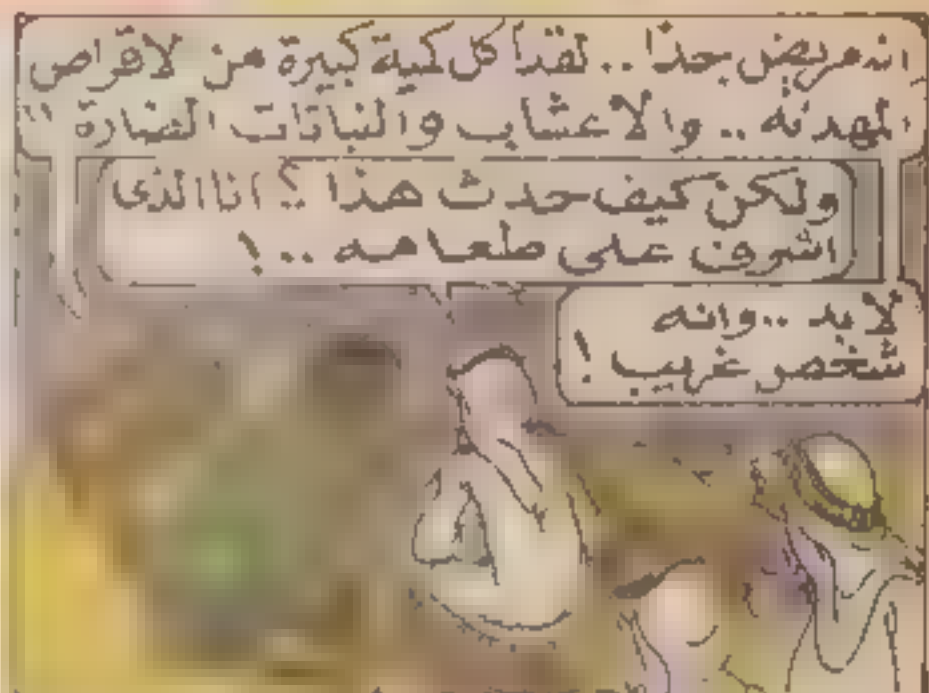 انه مريض جدا .. لقد أكل كمية كبيرة من لاقراص
المهدئه .. والاعشاب والنباتات الضارة !!
ولكن كيف حدث هذا ؟ انا الذى
اشرف على طعامه .. !
لابد .. وانه
شخص غريب !